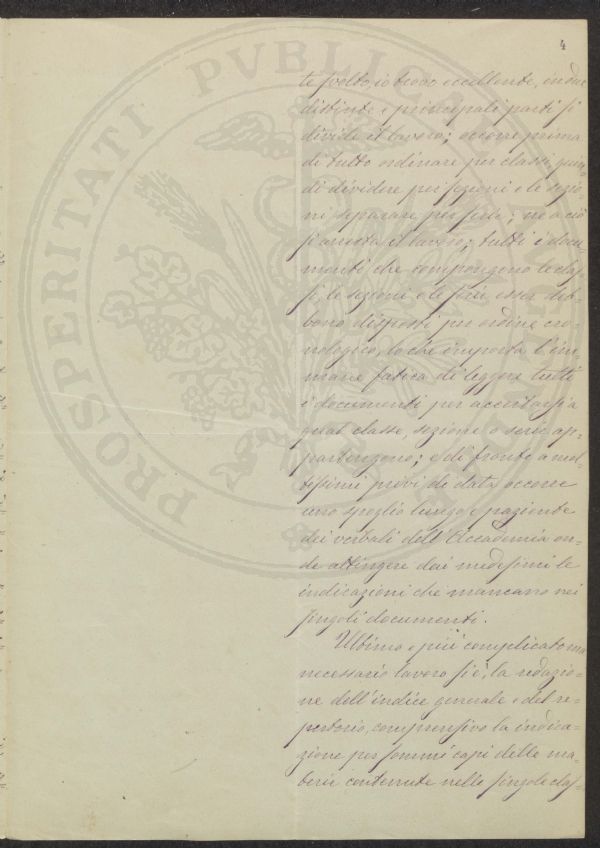 4
te svolto, io trovo eccellente, in due
distinte e principali parti si
divide il lavoro; occorre prima
di tutto ordinare per classi, quin-
di dividere per sezioni e le sezio-
ni separare per serie; ne a ciò
s'arresta il lavoro; tutti i docu-
menti che compongono le clas-
si, le sezioni e le serie, esser deb-
bono disposti per ordine cro-
nologico, lo che importa l'im-
mane fatica di leggere tutti
i documenti per accertarsi a
qual classe, sezione o serie ap-
partengono; e di fronte a mol-
tissimi privi di data, occorre
uno spoglio lungo e paziente
dei verbali dell'Accademia on-
de attingere dai medesimi le
indicazioni che mancano nei
singoli documenti.
Ultimo e più complicato ma
necessario lavoro si è, la redazio-
ne dell'indice generale e del re-
pertorio, comprensivo la indica-
zione per sommi capi delle ma-
terie contenute nelle singole clas-
PROSPERITATI PVBLICAE